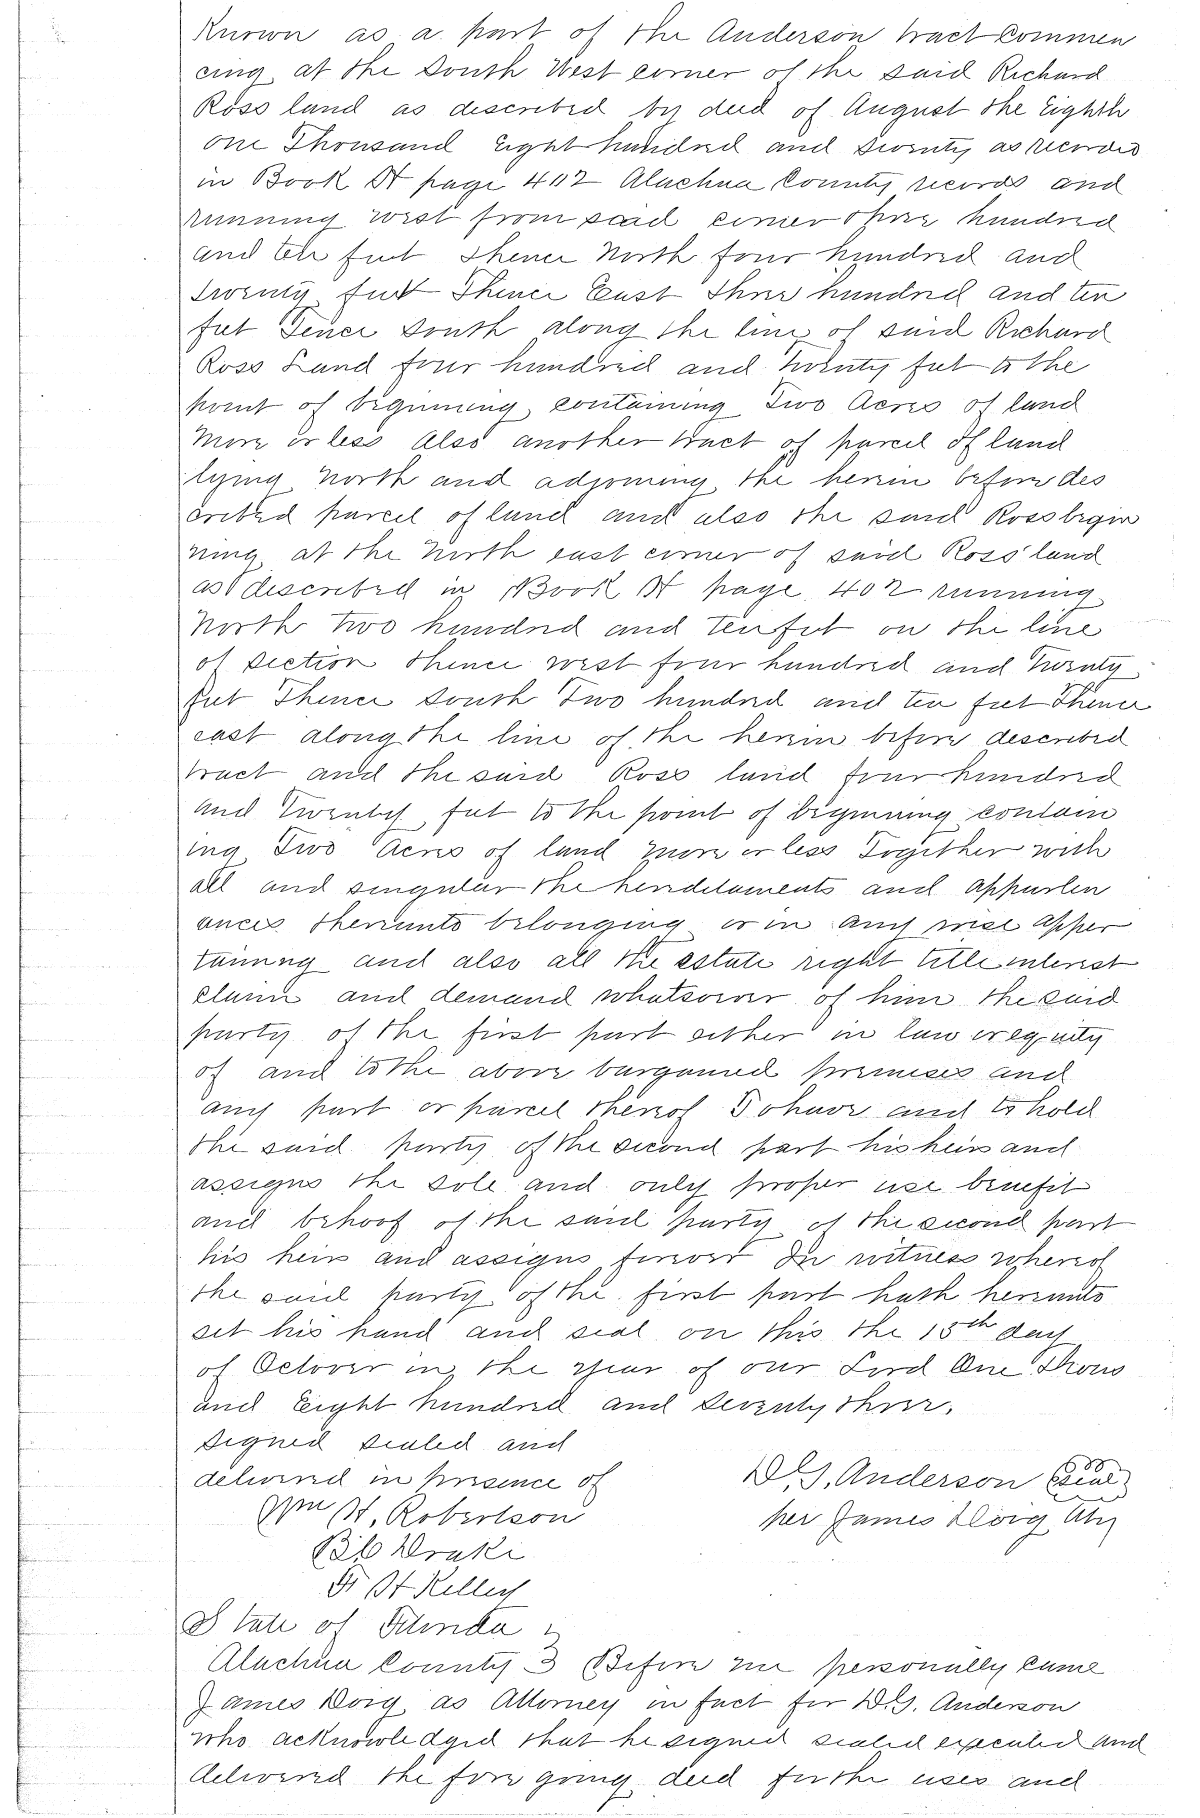 Known as a part of the Anderson tract Commen
cing at the South West corner of the said Richard
Ross land as described by deed of August the Eighth
one Thousand Eight hundred and Seventy as recorded
in Book H page 402 Alachua County records and
running west from said corner three hundred
and ten feet thence North four hundred and
twenty feet Thence East three hundred and ten
feet Tence South along the line of said Richard
Ross Land four hundred and twenty feet to the
point of beginning containing Two Acres of land
more or less Also another tract of parcel of land
lying North and adjoining the herein before des
cribed parcel of land and also the said Ross begin
ning at the North east corner of said Ross' land
as described in Book H page 402 running
North two hundred and ten feet on the line
of Section thence west four hundred and twenty
feet Thence South Two hundred and ten feet Thence
east along the line of the herein before described
tract and the said Ross land four hundred
and Twenty feet to the point of beginning contain
ing Two Acres of land more or less Together with
all and singular the hereditaments and appurten
ances thereunto belonging or in any wise apper
taining and also all the estate right title interest
claim and demand whatsoever of him the said
party of the first part either in law or equity
of and to the above bargained premises and
any part or parcel thereof To have and to hold
the said party of the second part his heirs and
assigns the sole and only proper use benefit
and behoof of the said party of the second part
his heirs and assigns forever In witness whereof
the said party of the first part hath hereunto
set his hand and seal on this the 15th day
of October in the year of our Lord One Thous
and Eight hundred and Seventy three.
Signed sealed and
delivered in presence of
D. G. Anderson Seal
Wm H. Robertson
per James Doig Aty
B. C. Drake
F H Kelley
State of Florida
Alachua County } Before me personally came
James Doig as Attorney in fact for D. G. Anderson
who acknowledged that he signed sealed executed and
delivered the fore going deed for the uses and